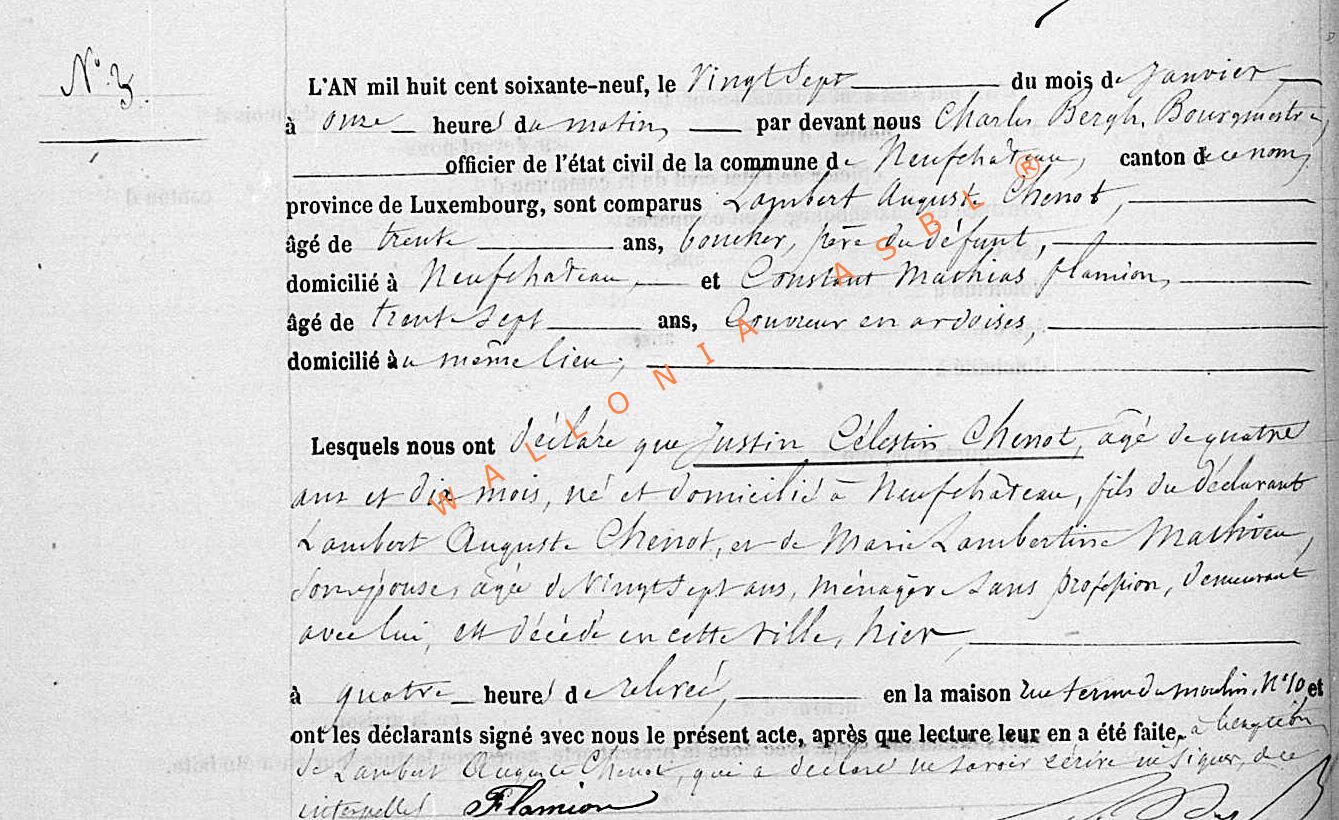 N° 3.
L'AN mil huit cent soixante-neuf, le Vingt Sept du mois de Janvier,
à onze heures du matin, par devant nous Charles Bergh, Bourgmestre,
officier de l'état civil de la commune de Neufchateau, canton de ce nom,
province de Luxembourg, sont comparus Lambert Auguste Chenot,
âgé de trente ans, boucher, père du défunt,
domicilié à Neufchateau, et Constant Mathias flamion,
âgé de trente-sept ans, Couvreur en ardoises,
domicilié au même lieu,
Lesquels nous ont déclaré que Justin Célestin Chenot, âgé de quatre
ans et dix mois, né et domicilié à Neufchâteau, fils du déclarant
Lambert Auguste Chenot, et de Marie Lambertine Mathieu,
son épouse, agée de Vingt Sept ans, ménagère sans profession, demeurant
avec lui, est décédé en cette ville, hier,
à quatre heures de relevée, en la maison rue terme du moulin, N° 10 et
ont les déclarants signé avec nous le présent acte, après que lecture leur en a été faite, à l'exception
de Lambert Auguste Chenot, qui a déclaré ne savoir écrire ni signer, de ce
interpellé Flamion
WALLONIA ASBL ®